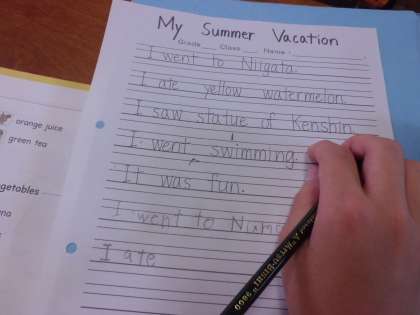 My Summer Vacation
Grade Class Name
I went to Niigata.
I ate yellow watermelon.
I saw statue of Kenshin
I went swimming.
It was fun.
I went to
I ate
orange juice
green tea
MITSUBISHI 9800